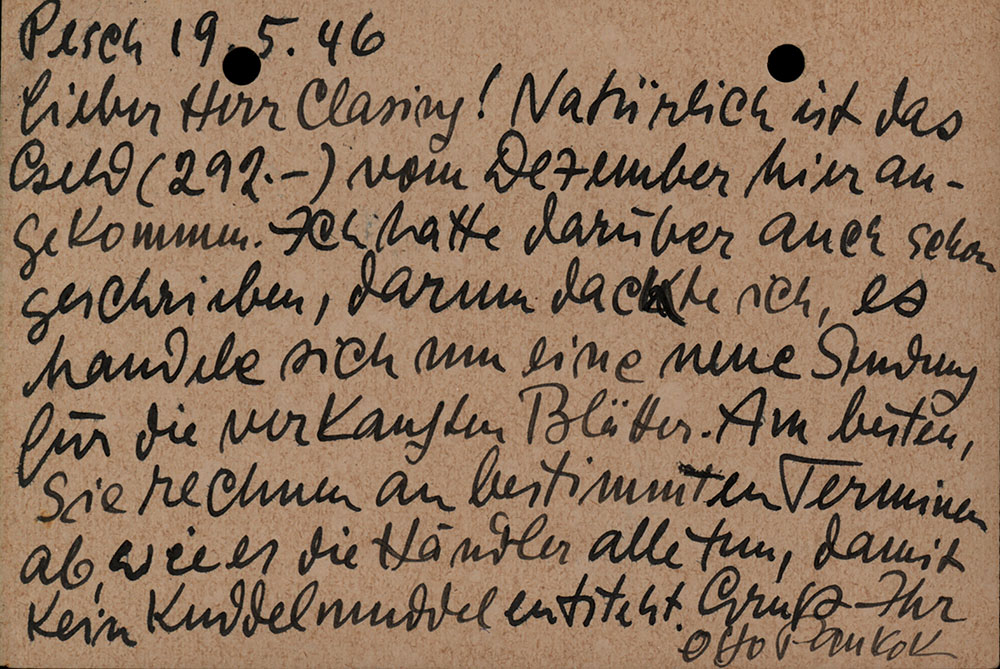 Pesch 19.5.46
Lieber Herr Clasing! Natürlich ist das
Geld (292.-) vom Dezember hier an-
gekommen. Ich hatte darüber auch schon
geschrieben, darum dachte ich, es
handele sich um eine neue Sendung
für die verkauften Blätter. Am besten,
Sie rechnen an bestimmten Terminen
ab, wie es die Händler alle tun, damit
kein Kuddelmuddel entsteht. Gruß Ihr
Otto Pankok